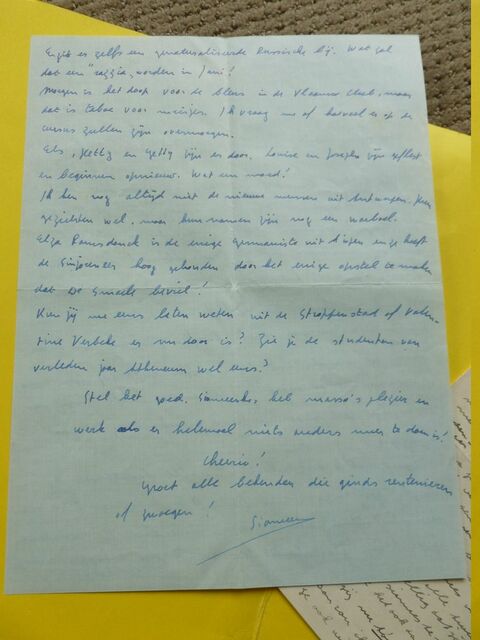 Er zijn er zelfs een genaturaliseerde Russische bij. Wat zal
dat een "razzia" worden in Juni!
Morgen is het doop voor de bleus in de Vlaamse Club, maar
dat is taboe voor meisjes. Ik vraag me af hoeveel er op de
cursus zullen zijn overmorgen.
Els, Hetty en Getty zijn er door. Louise en Josepha zijn geflest
en beginnen opnieuw. Wat een moed!
Ik ken nog altijd niet de nieuwe mensen uit Antwerpen. Hun
gezichten wel, maar hun namen zijn nog een warboel.
Elza Ramsdonck is de enige Germaniste uit A'pen en ze heeft
de Sinjoreneer hoog gehouden door het enige opstel te maken
dat De Smaele beviel!
Kun jij me eens laten weten uit de Stroppenstad of Valen-
tine Verbeke er nu door is? Zie je de studenten van
verleden jaar Atheneum wel eens?
Stel het goed, heb massa's plezier en
werk als er helemaal niets anders meer te doen is!
Cheerio!
Groet alle bekenden die ginds rentenieren
of zwoegen!